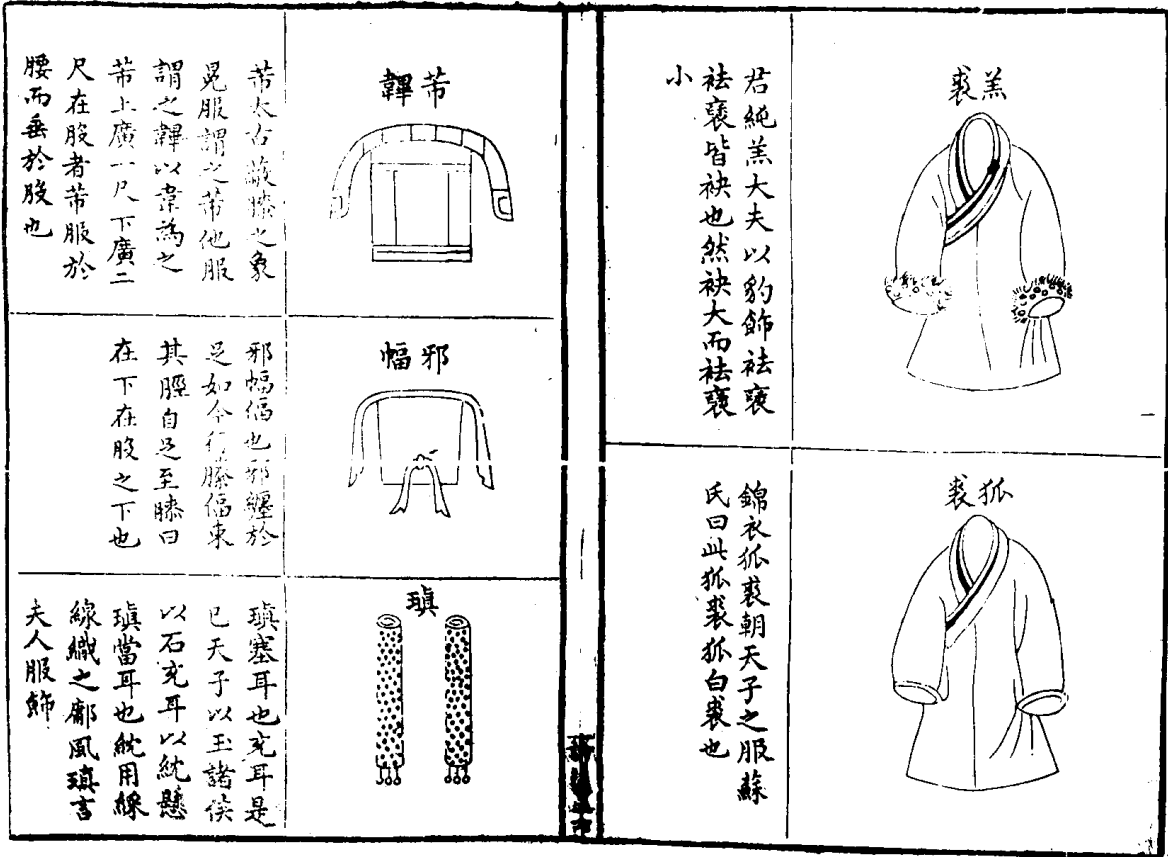 羔裘
君純羔大夫以豹飾袪褎
袪褎皆袂也然袂大而袪褎
小
狐裘
錦衣狐裘朝天子之服蘇
氏曰此狐裘狐白裘也
芾韠
芾太古蔽膝之象
冕服謂之芾他服
謂之韠以韋為之
芾上廣一尺下廣二
尺在股者芾服於
腰而垂於股也
邪幅
邪幅偪也邪纏於
足如今行縢偪束
其脛自足至膝曰
在下在股之下也
瑱
瑱塞耳也充耳是
已天子以玉諸侯
以石充耳以紞懸
瑱當耳也紞用綵
線織之鄘風瑱言
夫人服飾